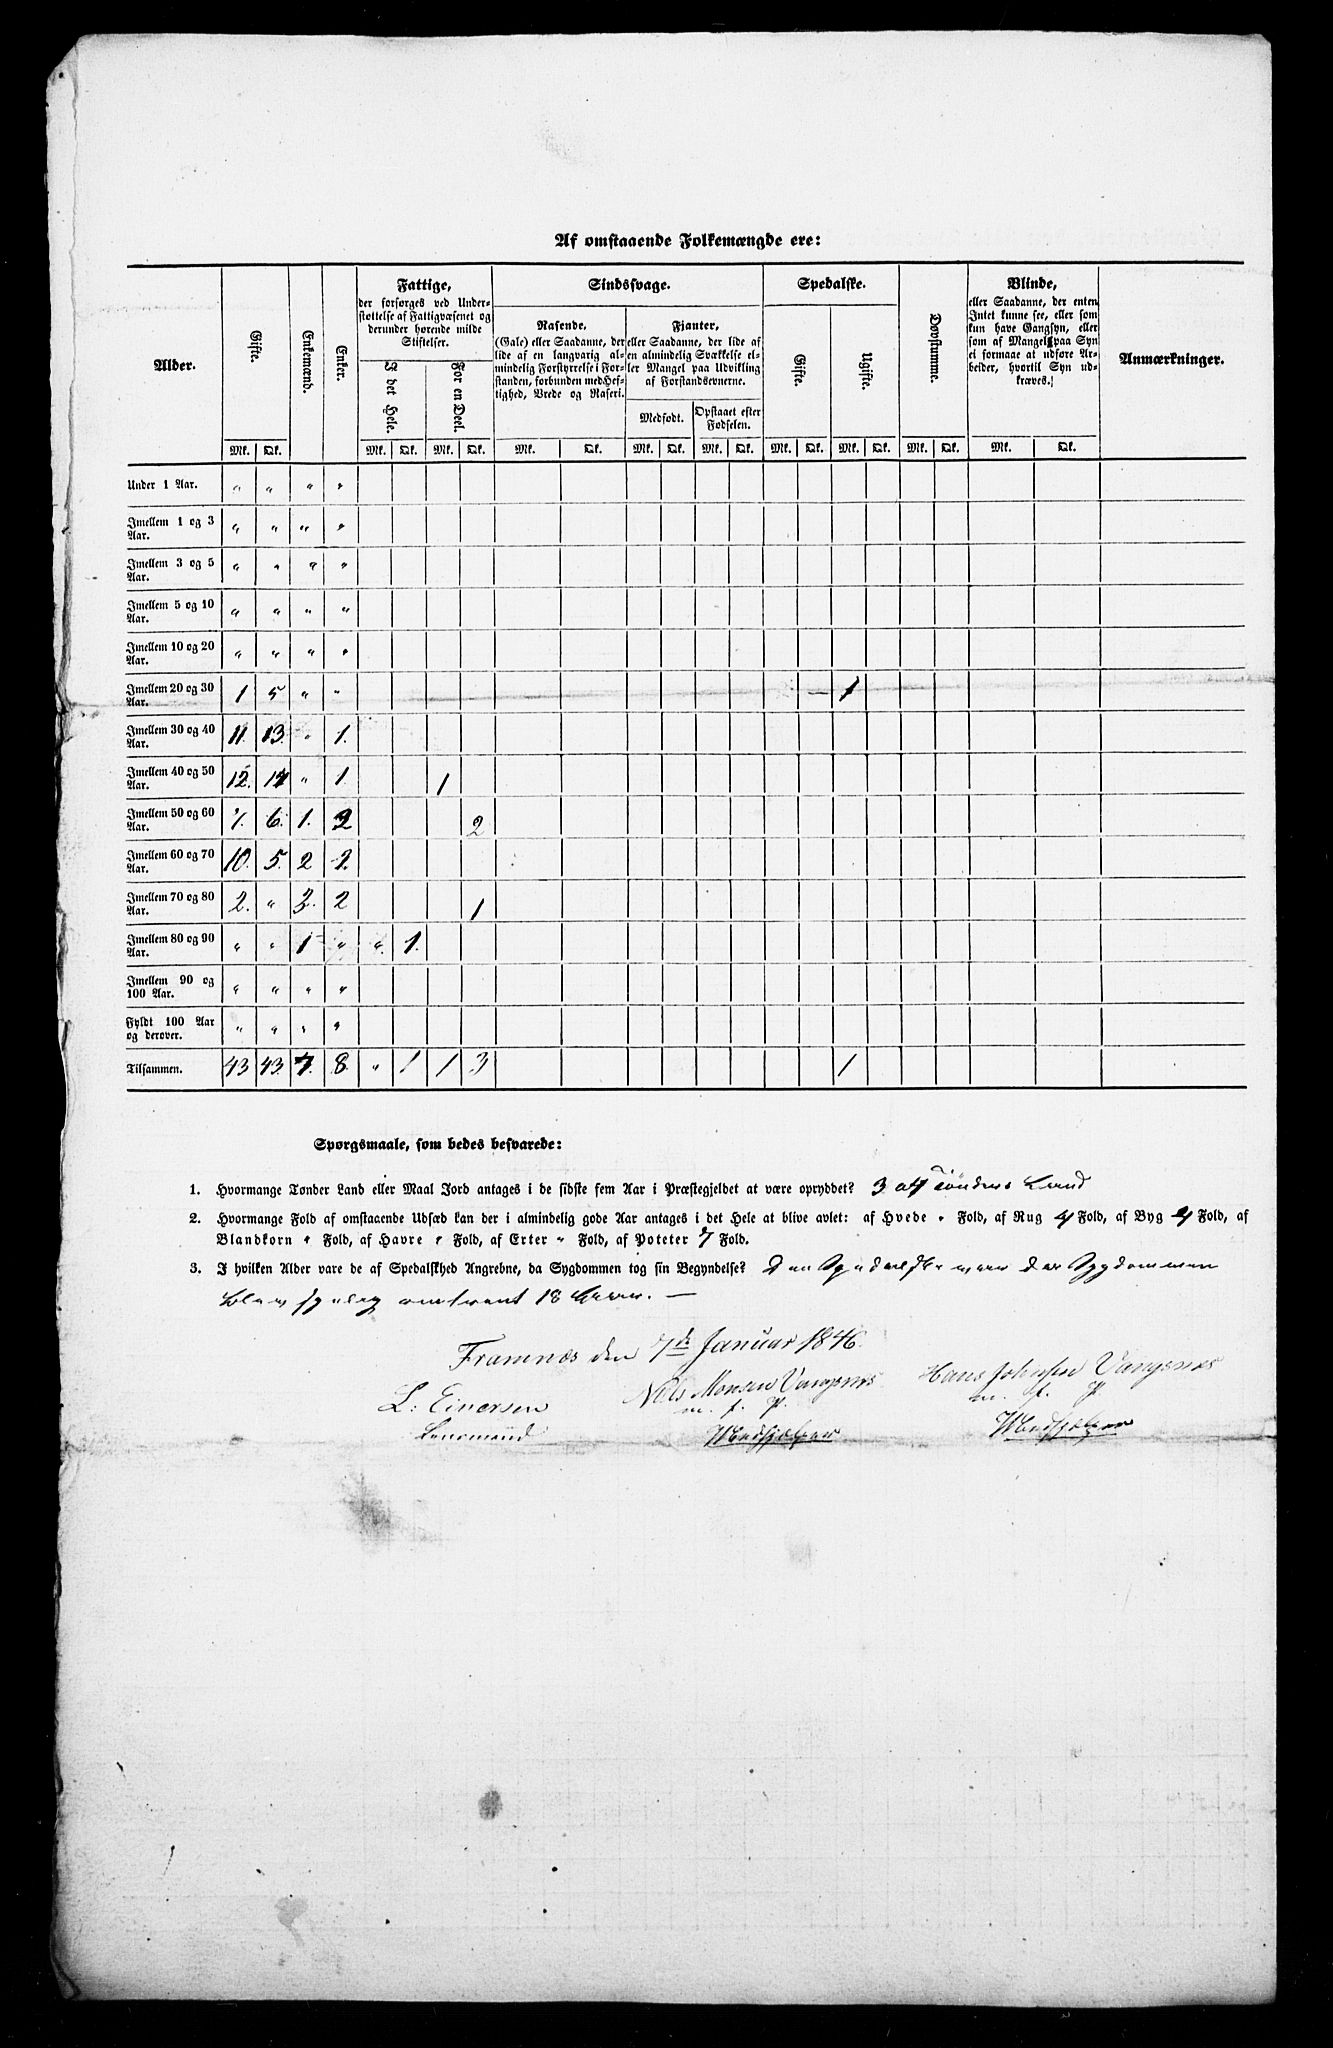 Af omstaaende Folkemængde ere:
Alder.
Gifte.
Enkemænd.
Enker.
Fattige,
der forsørges ved Under-
støttelse af Fattigvæsenet og
derunder hørende milde
Stiftelser.
I det Hele.
For en Deel.
Sindssvage.
Rasende,
(Gale) eller Saadanne, der
lide af en langvarig al-
mindelig Forstyrrelse i For-
standen, forbunden med Hef-
tighed, Vrede og Raseri.
Fjanter,
eller Saadanne, der lide af
en almindelig Svækkelse el-
ler Mangel paa Udvikling
af Forstandsevnerne.
Medfødt.
Opstaaet efter
Fødselen.
Spedalske.
Gifte.
Ugifte.
Døvstumme.
Blinde,
eller Saadanne, der enten
Intet kunne see, eller som
kun have Gangsyn, eller
som af Mangel paa Syn
ei formaae at udføre Ar-
beider, hvortil Syn ud-
kræves.)
Anmærkninger.
Mk. Qk. Mk. Qk. Mk. Qk. Mk. Qk. Mk. Qk. Mk. Qk. Mk. Qk. Mk. Qk. Mk. Qk. Mk. Qk.
Under 1 Aar. " " " "
Imellem 1 og 3
Aar. " " " "
Imellem 3 og 5
Aar. " " " "
Imellem 5 og 10
Aar. " " " "
Imellem 10 og 20
Aar. " " " "
Imellem 20 og 30
Aar. 1 5 " " 1
Imellem 30 og 40
Aar. 11. 13. " 1.
Imellem 40 og 50
Aar. 12. 14 " 1 1
Imellem 50 og 60
Aar. 7. 6. 1. 2 2
Imellem 60 og 70
Aar. 10. 5. 2 2.
Imellem 70 og 80
Aar. 2. " 3. 2 1
Imellem 80 og 90
Aar. " " 1 " " 1.
Imellem 90 og
100 Aar. " " " "
Fyldt 100 Aar
og derover. " " " "
Tilsammen. 43 43. 7. 8. " 1 1 3 1
Spørgsmaale, som bedes besvarede:
1. Hvormange Tønder Land eller Maal Jord antages i de sidste fem Aar i Præstegjeldet at være opryddet? 3 a 4 Tønders Land
2. Hvormange Fold af omstaaende Udsæd kan der i almindelig gode Aar antages i det Hele at blive avlet: af Hvede " Fold, af Rug 4 Fold, af Byg 4 Fold, af
Blandkorn " Fold, af Havre " Fold, af Erter " Fold, af Poteter 7 Fold.
3. I hvilken Alder vare de af Spedalskhed Angrebne, da Sygdommen tog sin Begyndelse? Den Spedalske var da Sygdommen
blev synlig omtrent 18 Aar. —
Framnæs den 7de Januar 1846.
L. Einersen
Lensmand
Niels Monsen Vangsnes
m. f. P.
Medhjelper
Hans Johnsen Vangsnes
m. f. P.
Medhjelper